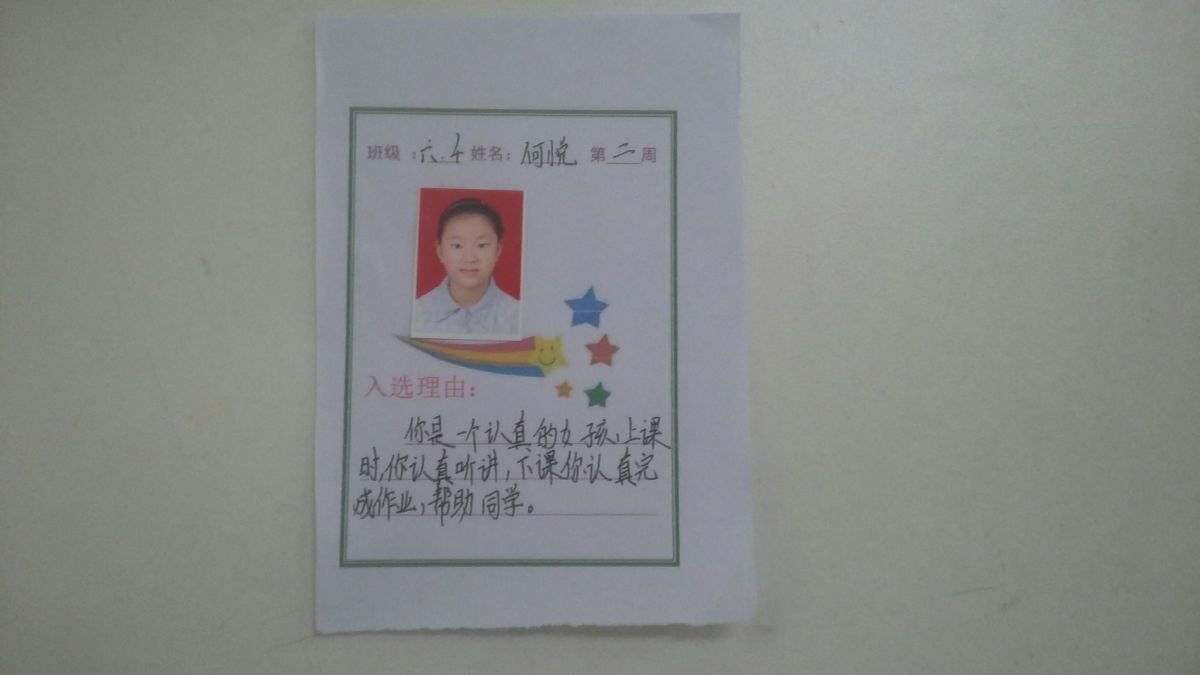 班级：六.4 姓名：何悦 第二周
入选理由：
你是一个认真的女孩，上课
时，你认真听讲，下课你认真完
成作业，帮助同学。